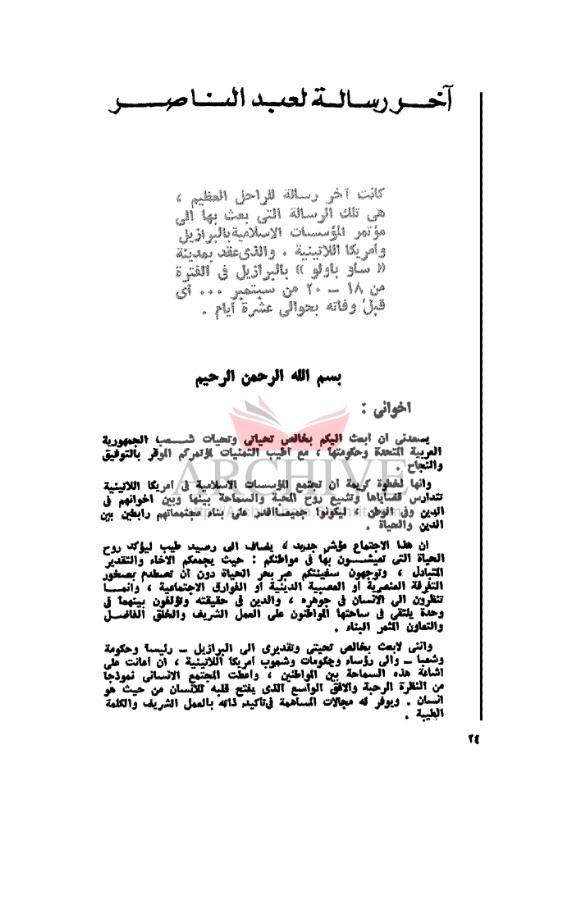 آخر رسالة لعبد الناصر
كانت آخر رسالة للراحل العظيم ،
هى تلك الرسالة التى بعث بها الى
مؤتمر المؤسسات الاسلامية بالبرازيل
وأمريكا اللاتينية . والذى عقد بمدينة
« ساو باولو » بالبرازيل فى الفترة
من ١٨ – ٢٠ من سبتمبر ... أى
قبل وفاته بحوالى عشرة أيام .
بسم الله الرحمن الرحيم
اخوانى :
يسعدنى ان ابعث اليكم بخالص تحياتى وتحيات شعب الجمهورية
العربية المتحدة وحكومتها ، مع اطيب التمنيات لمؤتمركم الموقر بالتوفيق
والنجاح
وانها لخطوة كريمة ان تجتمع المؤسسات الاسلامية فى أمريكا اللاتينية
تتدارس قضاياها وتشيع روح المحبة والسماحة بينها وبين اخوانهم فى
الدين وفى الوطن ، ليكونوا جميعا اقدر على بناء مجتمعاتهم رابطين بين
الدين والحياة .
ان هذا الاجتماع مؤشر جديد ، يضاف الى رصيد طيب ليؤكد روح
الحياة التى تعيشون بها فى مواطنكم : حيث يجمعكم الاخاء والتقدير
المتبادل ، وتوجهون سفينتكم عبر بحر الحياة دون أن تصطدم بصخور
التفرقة العنصرية أو العصبية الدينية أو الفوارق الاجتماعية ، وانما
تنظرون الى الانسان فى جوهره ، والدين فى حقيقته وتؤلفون بينهما فى
وحدة يلتقى فى ساحتها المواطنون على العمل الشريف والخلق الفاضل
والتعاون المثمر البناء .
واننى لابعث بخالص تحيتى وتقديرى الى البرازيل – رئيسا وحكومة
وشعبا – والى رؤساء وحكومات وشعوب أمريكا اللاتينية ، ان أعانت على
اشاعة هذه السماحة بين المواطنين ، وأعطت المجتمع الانسانى نموذجا
من النظرة الرحبة والافق الواسع الذى يفتح قلبه للانسان من حيث هو
انسان . ويوفر له مجالات المساهمة فى تأكيد ذاته بالعمل الشريف والكلمة
الطيبة .
٢٤
ARCHIVE